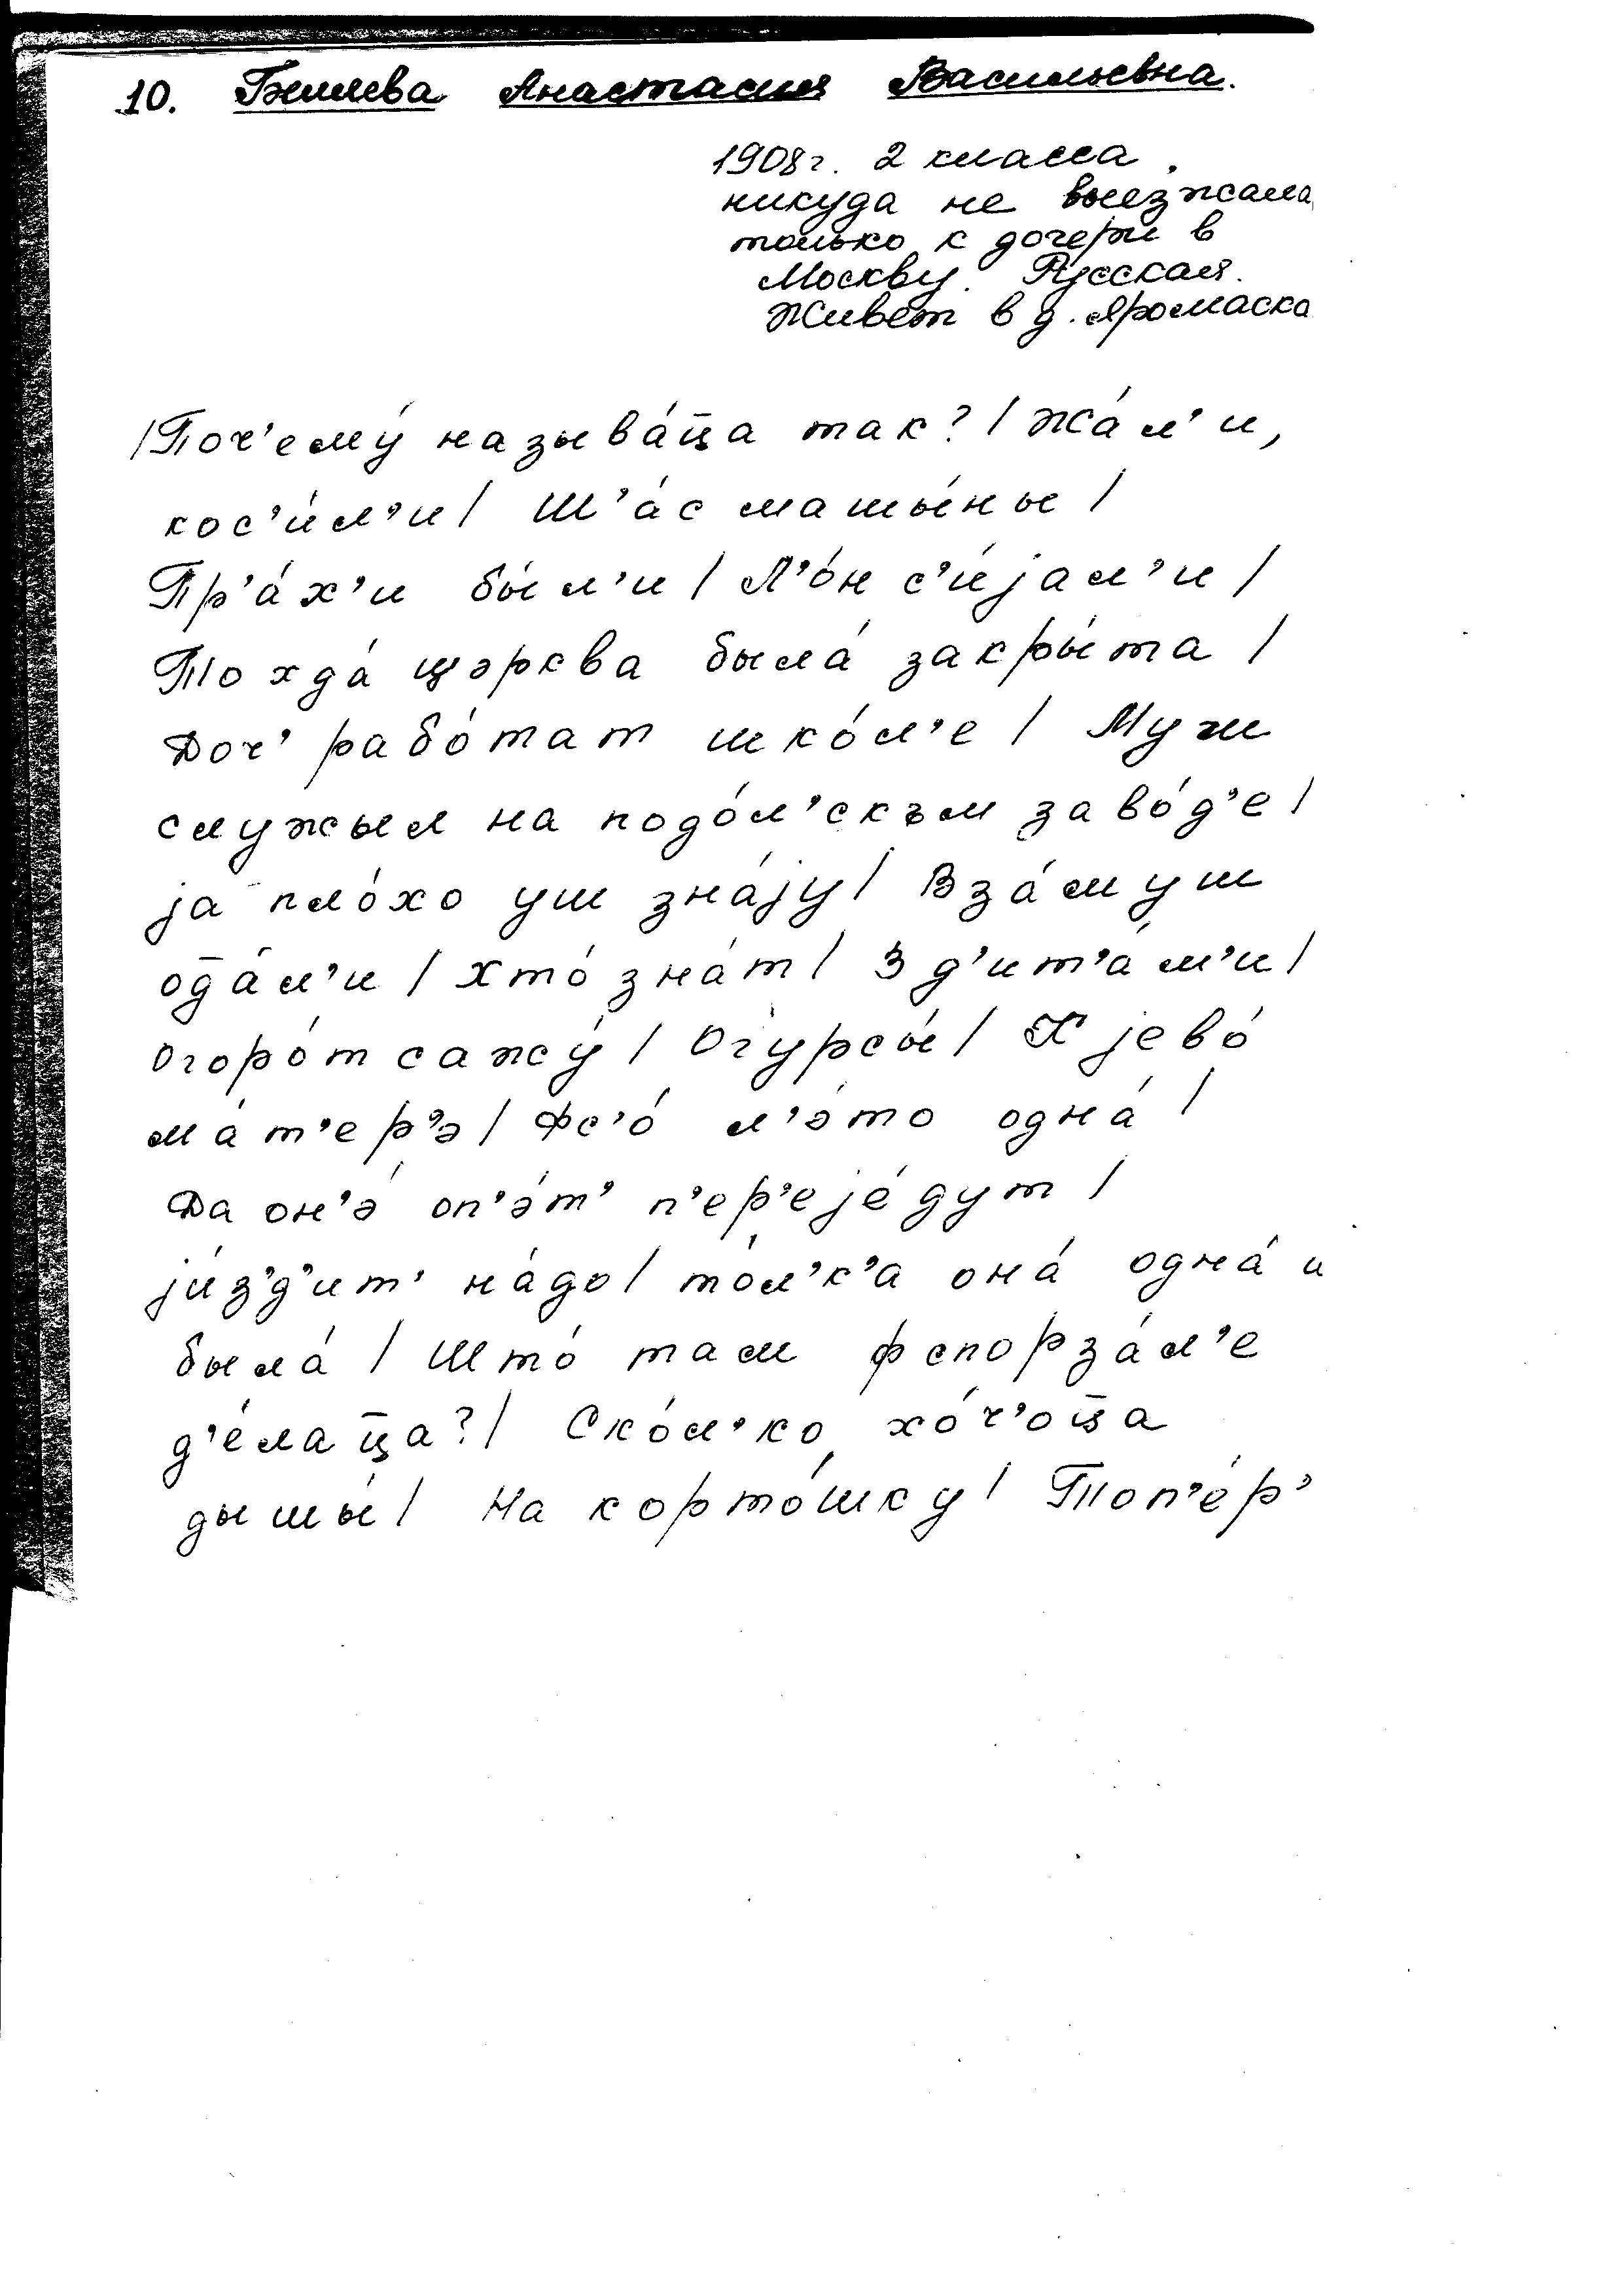 10. Беляева Анастасия Васильевна.
1908г. 2 класса.
никуда не выезжала,
только к дочери в
Москву. Русская.
Живёт в д. Яромаска
/Поч’ему́ называ́ц̄а так?/ Жа́л’и,
кос’и́л’и/ Ш’а́с машы́ны/
Пр’а́х’и бы́л’и/ Л’о́н с’и́јал’и/
Тохда́ цэрква была́ закры́та/
Доч’ рабо́тат шко́л’е/ Муж
служыл на подо́л’скъм заво́д’е/
ја пло́хо уш зна́јỹ/ Вза́муш
од̄а́л’и/ Хто́ зна́т/ З д’ит’а́м’и/
Огоро́т сажу́/ Огурсы́/ К јево́
ма́т’ер’э/ Фс’о́ л’э́то одна́/
Да он’э́ оп’э́т’ п’ер’еје́дут/
ји́з’д’ит’ на́до/ то́л’к’а она́ одна́ и
была́/ Што́ там фспорза́л’е
д’е́лац̄а?/ Ско́л’ко хо́ч’оц̄а
дышы́/ На корто́шку/ Топ’е́р’